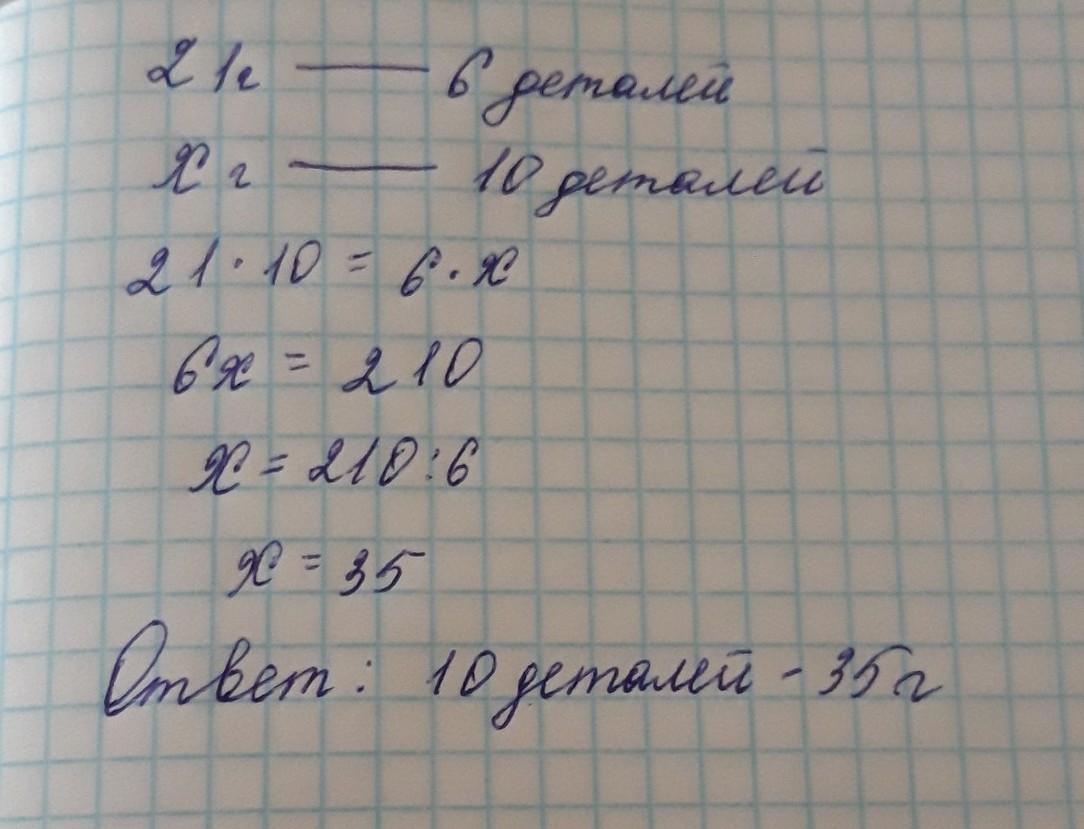 21г — 6 деталей
x г — 10 деталей
21 · 10 = 6 · x
6x = 210
x = 210 : 6
x = 35
Ответ: 10 деталей - 35 г